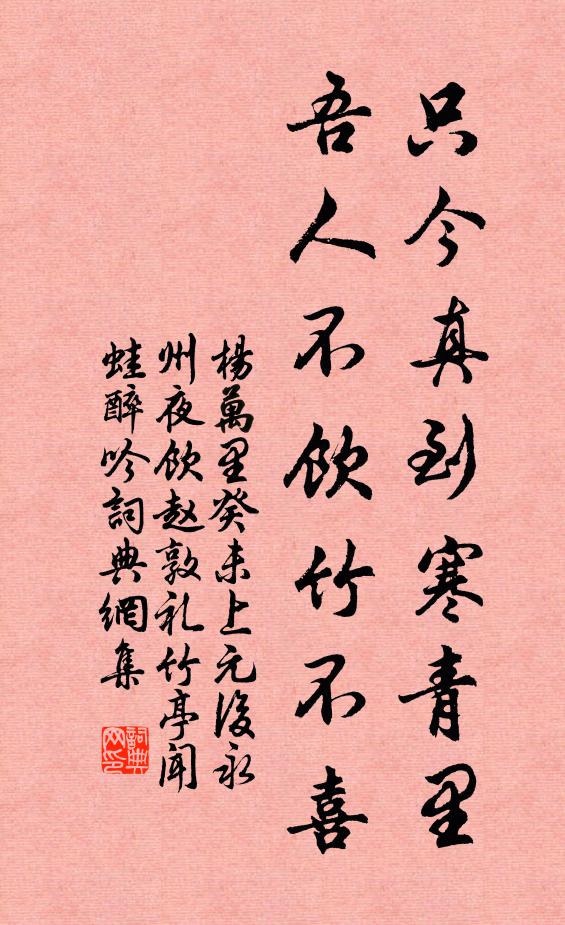 只今真到寒青里
吾人不飲竹不喜
楊萬里癸未上元後永
州夜飲赵敦礼竹亭聞
蛙醉吟詞典網集
詞典
网印